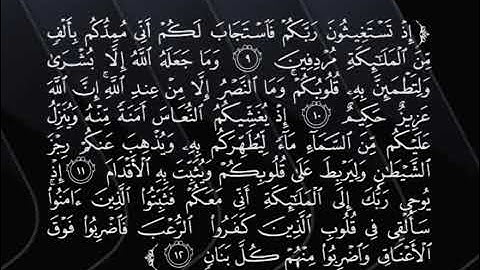 ﴿إِذْ تَسْتَغِيثُونَ رَبَّكُمْ فَٱسْتَجَابَ لَكُمْ أَنِّى مُمِدُّكُم بِأَلْفٍ
مِّنَ ٱلْمَلَـٰٓئِكَةِ مُرْدِفِينَ ٩ وَمَا جَعَلَهُ ٱللَّهُ إِلَّا بُشْرَىٰ
وَلِتَطْمَئِنَّ بِهِۦ قُلُوبُكُمْ ۚ وَمَا ٱلنَّصْرُ إِلَّا مِنْ عِندِ ٱللَّهِ ۚ إِنَّ ٱللَّهَ
عَزِيزٌ حَكِيمٌ ١٠ إِذْ يُغَشِّيكُمُ ٱلنُّعَاسَ أَمَنَةً مِّنْهُ وَيُنَزِّلُ
عَلَيْكُم مِّنَ ٱلسَّمَآءِ مَآءً لِّيُطَهِّرَكُم بِهِۦ وَيُذْهِبَ عَنكُمْ رِجْزَ
ٱلشَّيْطَـٰنِ وَلِيَرْبِطَ عَلَىٰ قُلُوبِكُمْ وَيُثَبِّتَ بِهِ ٱلْأَقْدَامَ ١١ إِذْ
يُوحِى رَبُّكَ إِلَى ٱلْمَلَـٰٓئِكَةِ أَنِّى مَعَكُمْ فَثَبِّتُوا۟ ٱلَّذِينَ ءَامَنُوا۟ ۚ
سَأُلْقِى فِى قُلُوبِ ٱلَّذِينَ كَفَرُوا۟ ٱلرُّعْبَ فَٱضْرِبُوا۟ فَوْقَ
ٱلْأَعْنَاقِ وَٱضْرِبُوا۟ مِنْهُمْ كُلَّ بَنَانٍ ١٢﴾